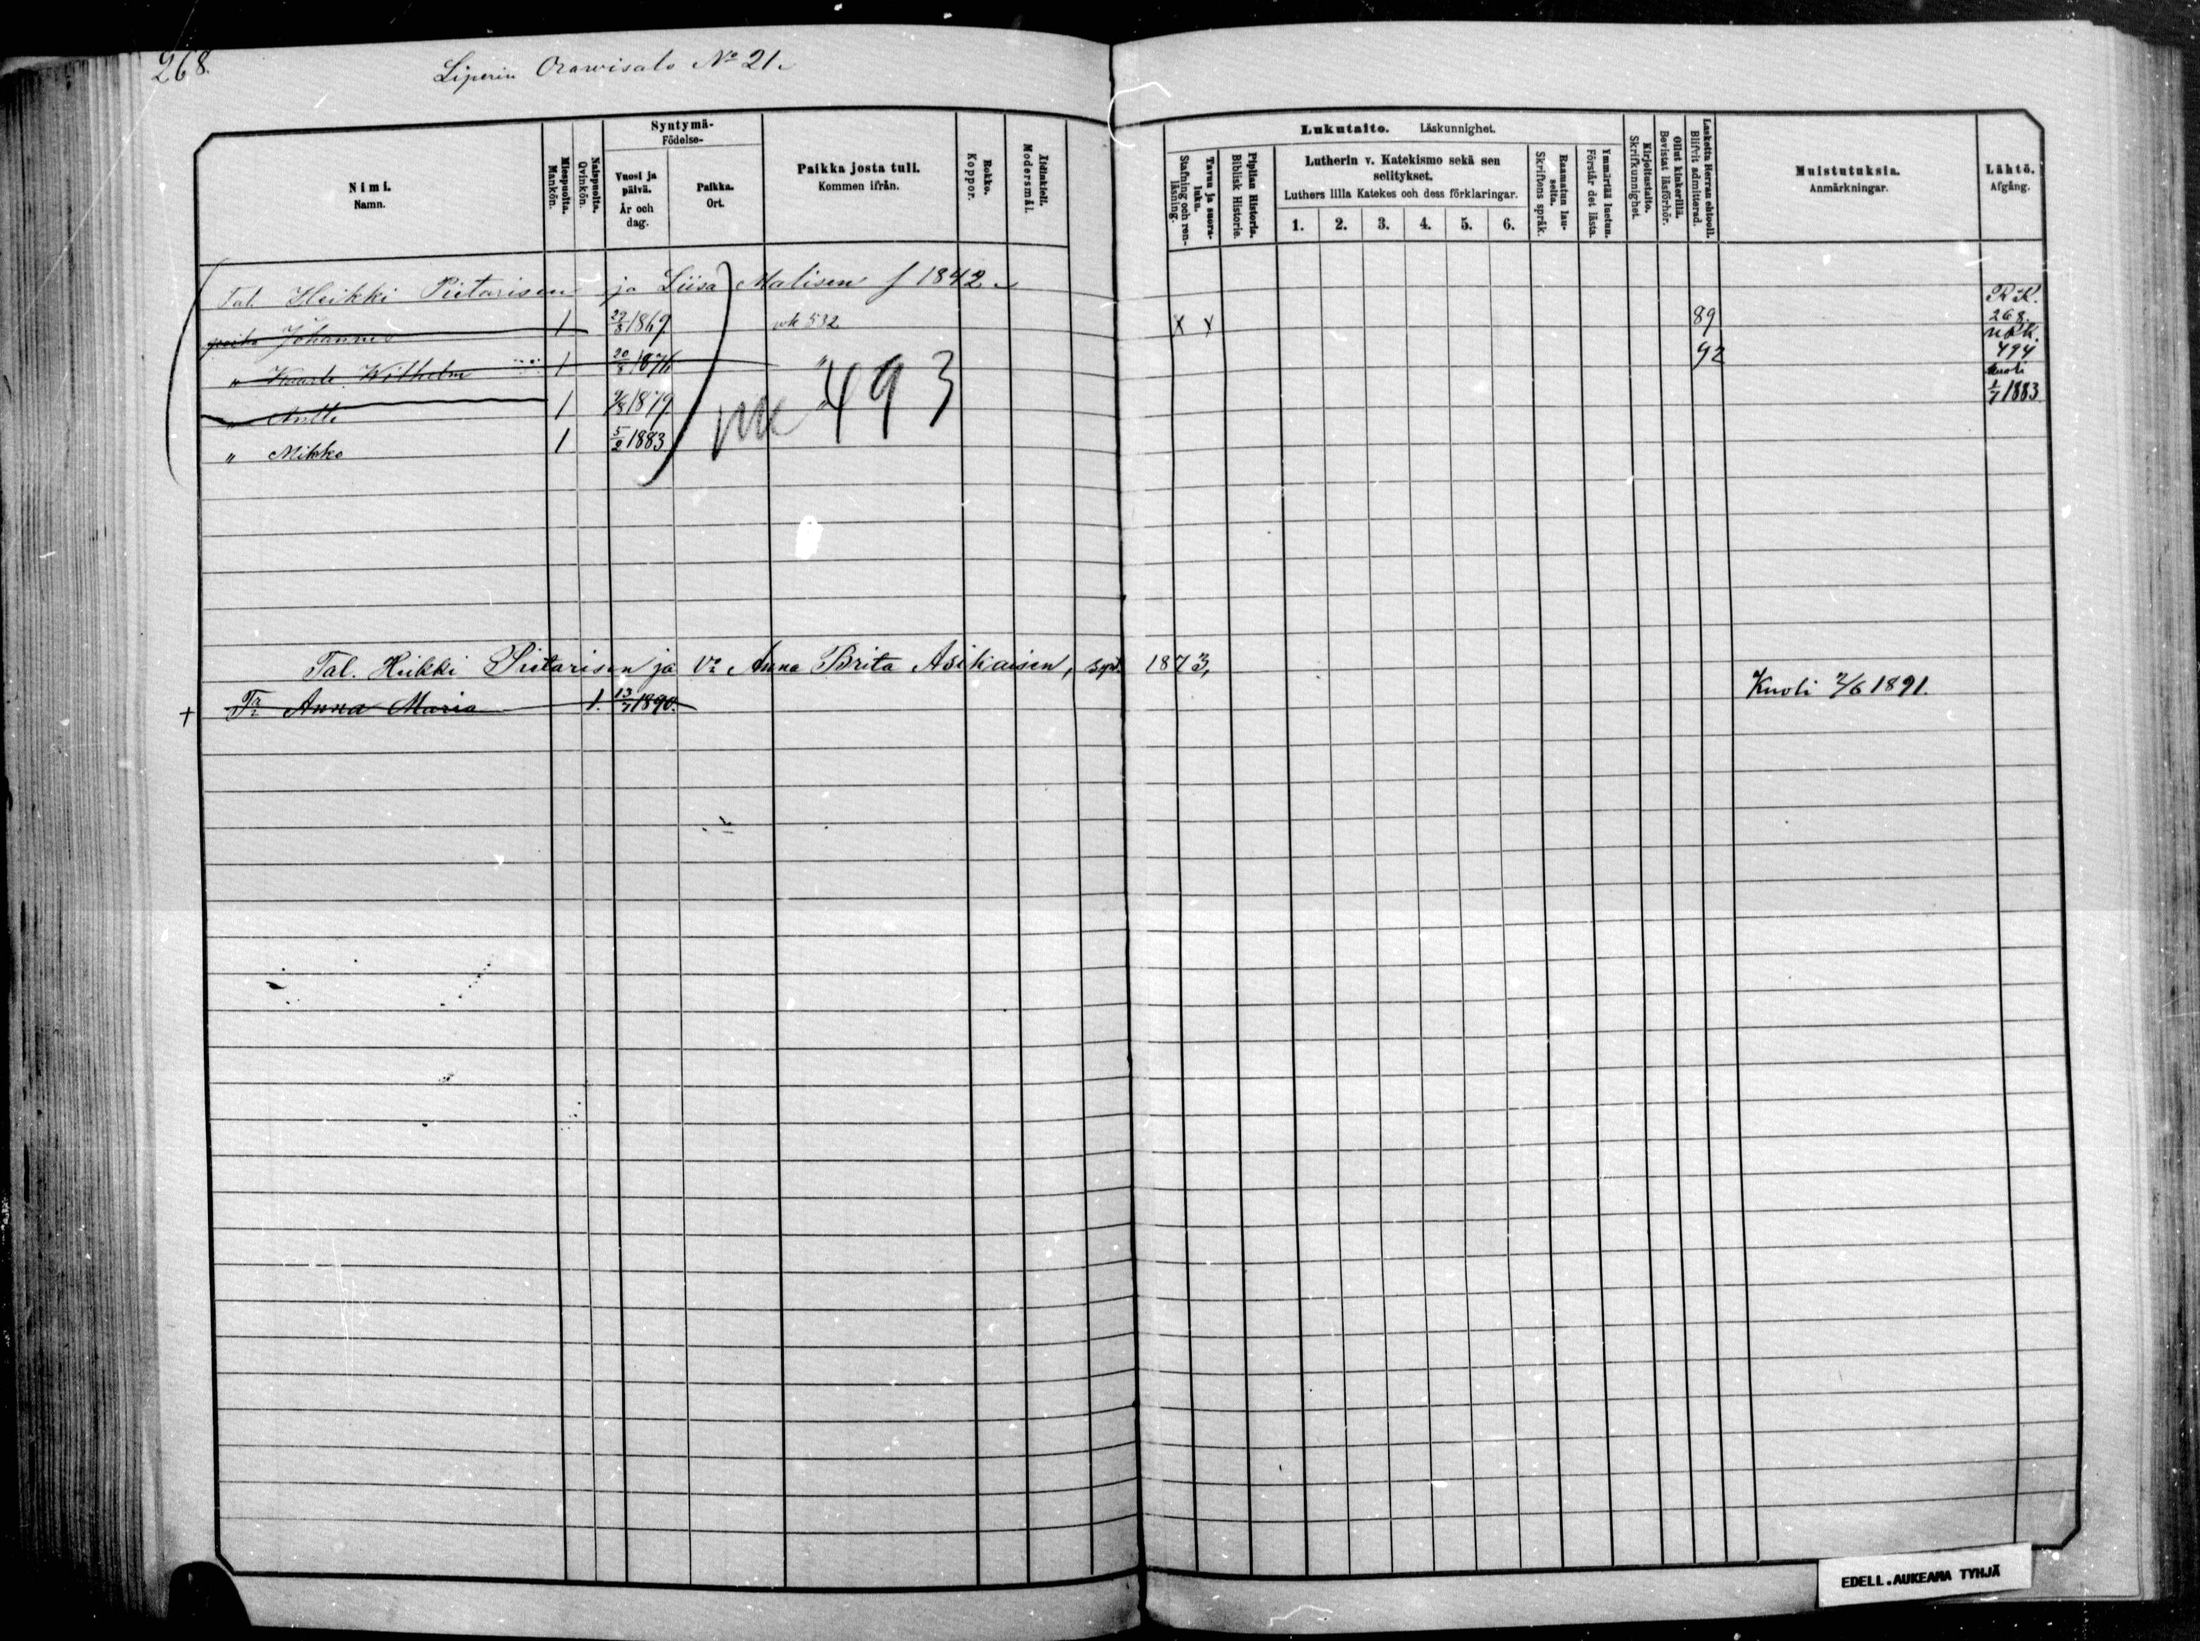 268.
Liperin Orawisalo No 21.
Nimi.
Namn.
Miespuolta.
Mankön.
Naispuolta.
Qvinkön.
Syntymä-
Födelse-
Vuosi ja
päivä.
År och
dag.
Paikka.
Ort.
Paikka josta tuli.
Kommen ifrån.
Rokko.
Koppor.
Äidinkieli.
Modersmål.
Lukutaito. Läskunnighet.
Tavuu ja suora-
luku.
Stafning och ren-
läsning.
Piplian Historia.
Biblisk Historie.
Lutherin v. Katekismo sekä sen
selitykset.
Luthers lilla Katekes och dess förklaringar.
1. 2. 3. 4. 5. 6.
Raamatun lau-
seita.
Skriftens språk.
Ymmärtää luetun.
Förstår det lästa.
Kirjoitustaito.
Skrifkunnighet.
Ollut kinkerillä.
Bevistat läsförhör.
Laskettu Herran ehtooll.
Blifvit admitterad.
Muistutuksia.
Anmärkningar.
Lähtö.
Afgång.
Tal. Heikki Pietarisen ja Liisa Malisen f 1842
poika Johannes 1 22/8 1869 wk 532 X X 89 RK. 268.
" Kaarle Wilhelm 1 20/8 1871 " 92 uRK. 494
" Antti 1 1879 " kuoli 1/7 1883
" Mikko 1 5/2 1883
493
Tal. Heikki Pietarisen ja Vo Anna Brita Asikaisen, synt. 1873,
+ Tr Anna Maria 1. 13/7 1890. Kuoli 2/6 1891.
EDELL.AUKEAMA TYHJÄ